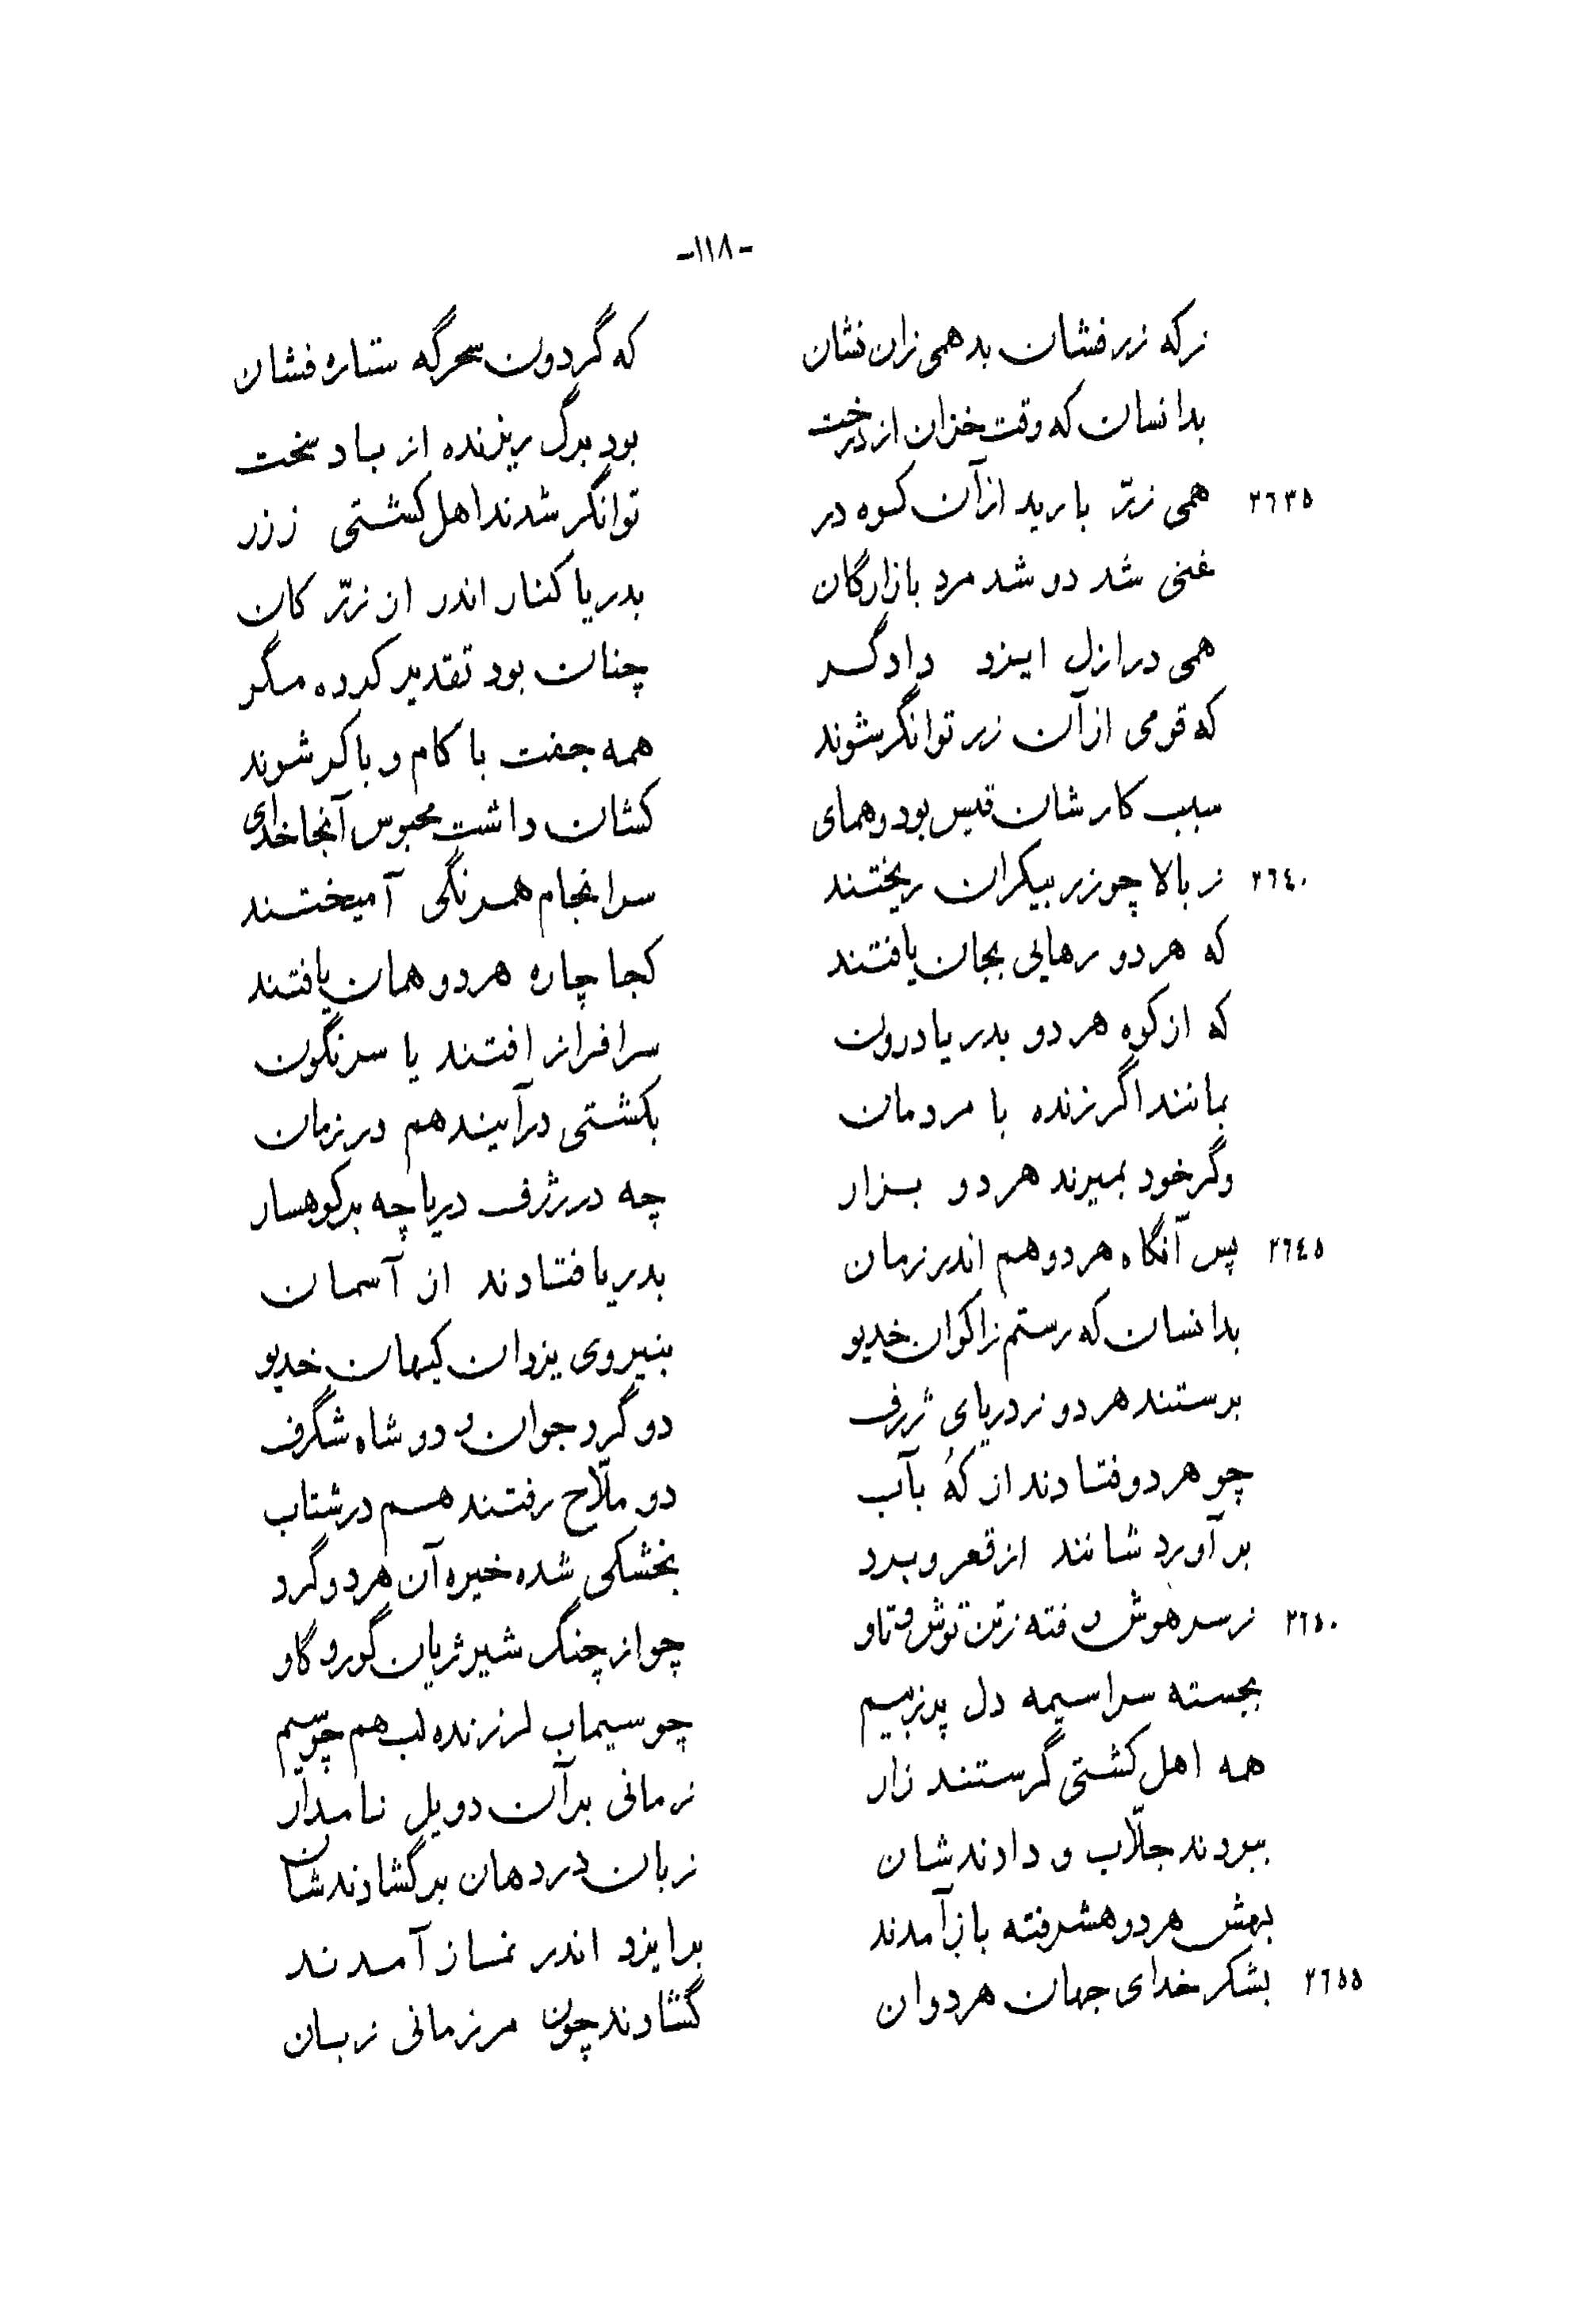 -١١٨-
زکه زر فشان بد همی زان نشان که گردون سحرگه ستاره فشان
بدانسان که وقت خزان از درخت بود برگ ریزنده از باد سخت
٢٦٣٥ همی زرّ بارید از آن کوه در توانگر شدند اهل کشتی ز زر
غنی شد دو شد مرد بازارگان بدریا کنار اندر از زرّ کان
همی در ازل ایزد دادگر چنان بود تقدیر کرده مگر
که قومی از آن زر توانگر شوند همه جفت با کام و با کر شوند
سبب کارشان قیس بود و همای کشان داشت محبوس آنجا خدای
٢٦٤٠ ز بالا چو زر بیکران ریختند سرانجام همرنگی آمیختند
که هر دو رهایی بجان یافتند کجا چاره هر دو همان یافتند
که از کوه هر دو بدریا درون سرافراز افتند یا سرنگون
بمانند اگر زنده با مردمان بکشتی درآیند هم در زمان
وگر خود بمیرند هر دو بزار چه در ژرف دریا چه بر کوهسار
٢٦٤٥ پس آنگاه هر دو هم اندر زمان بدریا فتادند از آسمان
بدانسان که رستم ز اکوان خدیو بنیروی یزدان کیهان خدیو
برستند هر دو ز دریای ژرف دو گرد جوان و دو شاه شگرف
چو هر دو فتادند از کُه بآب دو ملّاح رفتند هم در شتاب
بر آورد شانند از قعر و برد بخشکی شده خیره آن هر دو گرد
٢٦٥٠ ز سر هوش و فته ز تن توش و تاو چو از چنگ شیر ژیان گور و گاو
بجسته سراسیمه دل پر ز بیم چو سیماب لرزنده لب هم چو سیم
همه اهل کشتی گرستند زار زمانی بر آن دو یل نامدار
ببردند جلّاب و دادند شان زبان در دهان بر گشادند شان
بهش هر دو هشرفته باز آمدند بر ایزد اندر نماز آمدند
٢٦٥٥ بشکر خدای جهان هر دوان گشادند چون مرزمانی زبان